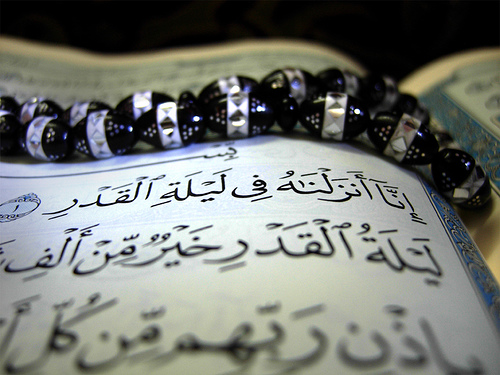 إِنَّا أَنزَلْنَاهُ فِي لَيْلَةِ الْقَدْرِ ١
لَيْلَةُ الْقَدْرِ خَيْرٌ مِّنْ أَلْفِ
بِإِذْنِ رَبِّهِم مِّن كُلِّ